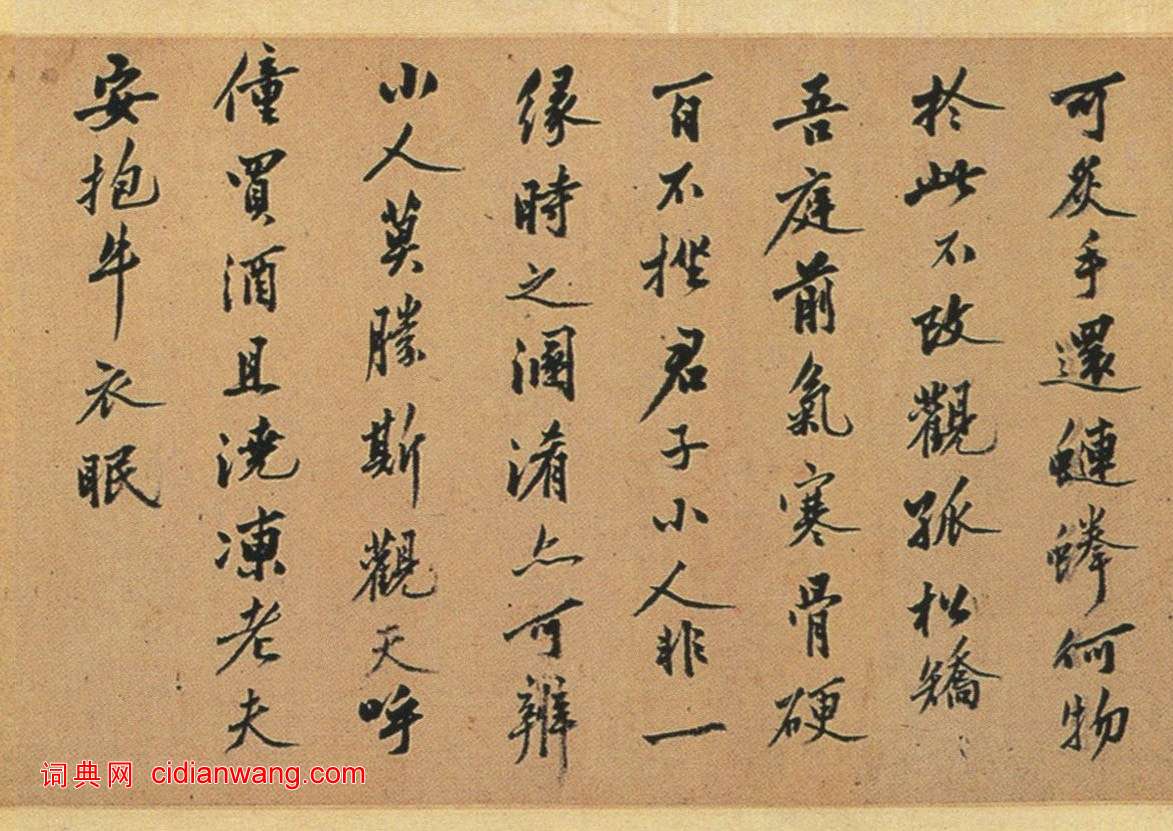 可炙手還何物
於此不改觀孤松矯〻
吾庭前氣寒骨硬
百不挫君子小人非一
緣時之溷淆亦可辨
小人莫斯觀天呼
僮買酒且澆凍老夫
安抱牛衣眠
词典网 cidianwang.com